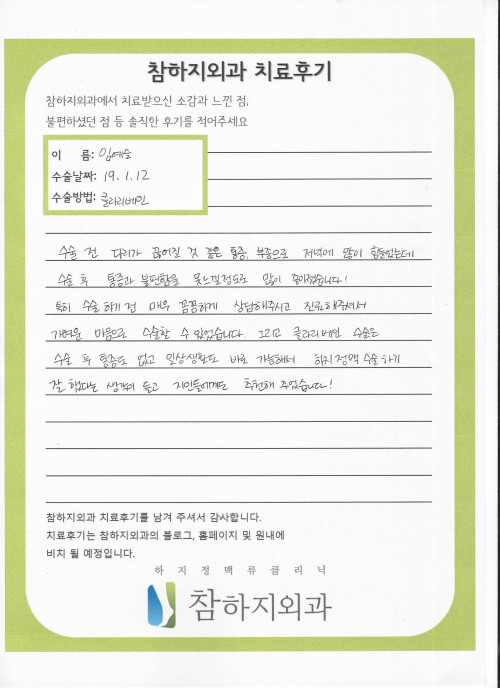 참하지외과 치료후기
참하지외과에서 치료받으신 소감과 느낀 점,
불편하셨던 점 등 솔직한 후기를 적어주세요
이 름: 임예슬
수술날짜: 19. 1. 12
수술방법: 클라리베인
수술 전 다리가 끊어질 것 같은 통증, 부종으로 저녁에 많이 힘들었는데
수술 후 통증과 불편함을 못느낄정도로 많이 좋아졌습니다!
특히 수술 하기 전 매우 꼼꼼하게 상담해주시고 진료해주셔서
가벼운 마음으로 수술할 수 있었습니다. 그리고 클라리베인 수술은
수술 후 통증도 없고 일상생활도 바로 가능해서 하지정맥 수술하기
잘 했다는 생각이 들고 지인들에게도 추천해 주었습니다!
참하지외과 치료후기를 남겨 주셔서 감사합니다.
치료후기는 참하지외과의 블로그, 홈페이지 및 원내에
비치 될 예정입니다.
하지정맥류클리닉
참하지외과